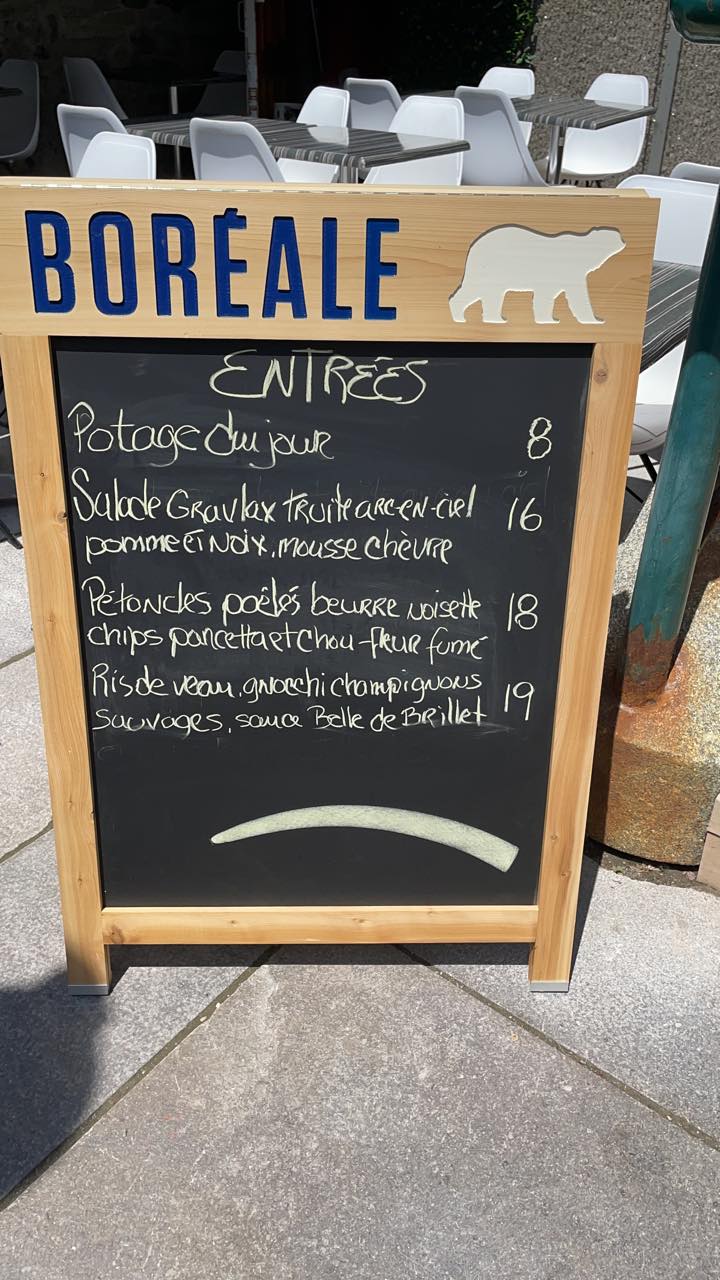 BORÉALE
ENTRÉES
Potage du jour 8
Salade Gravlax truite arc-en-ciel 16
pomme et Noix, mousse chèvre
Pétoncles poêlés beurre noisette 18
chips pancetta et chou-fleur fumé
Ris de veau, gnocchi champignons 19
sauvages, sauce Belle de Brillet